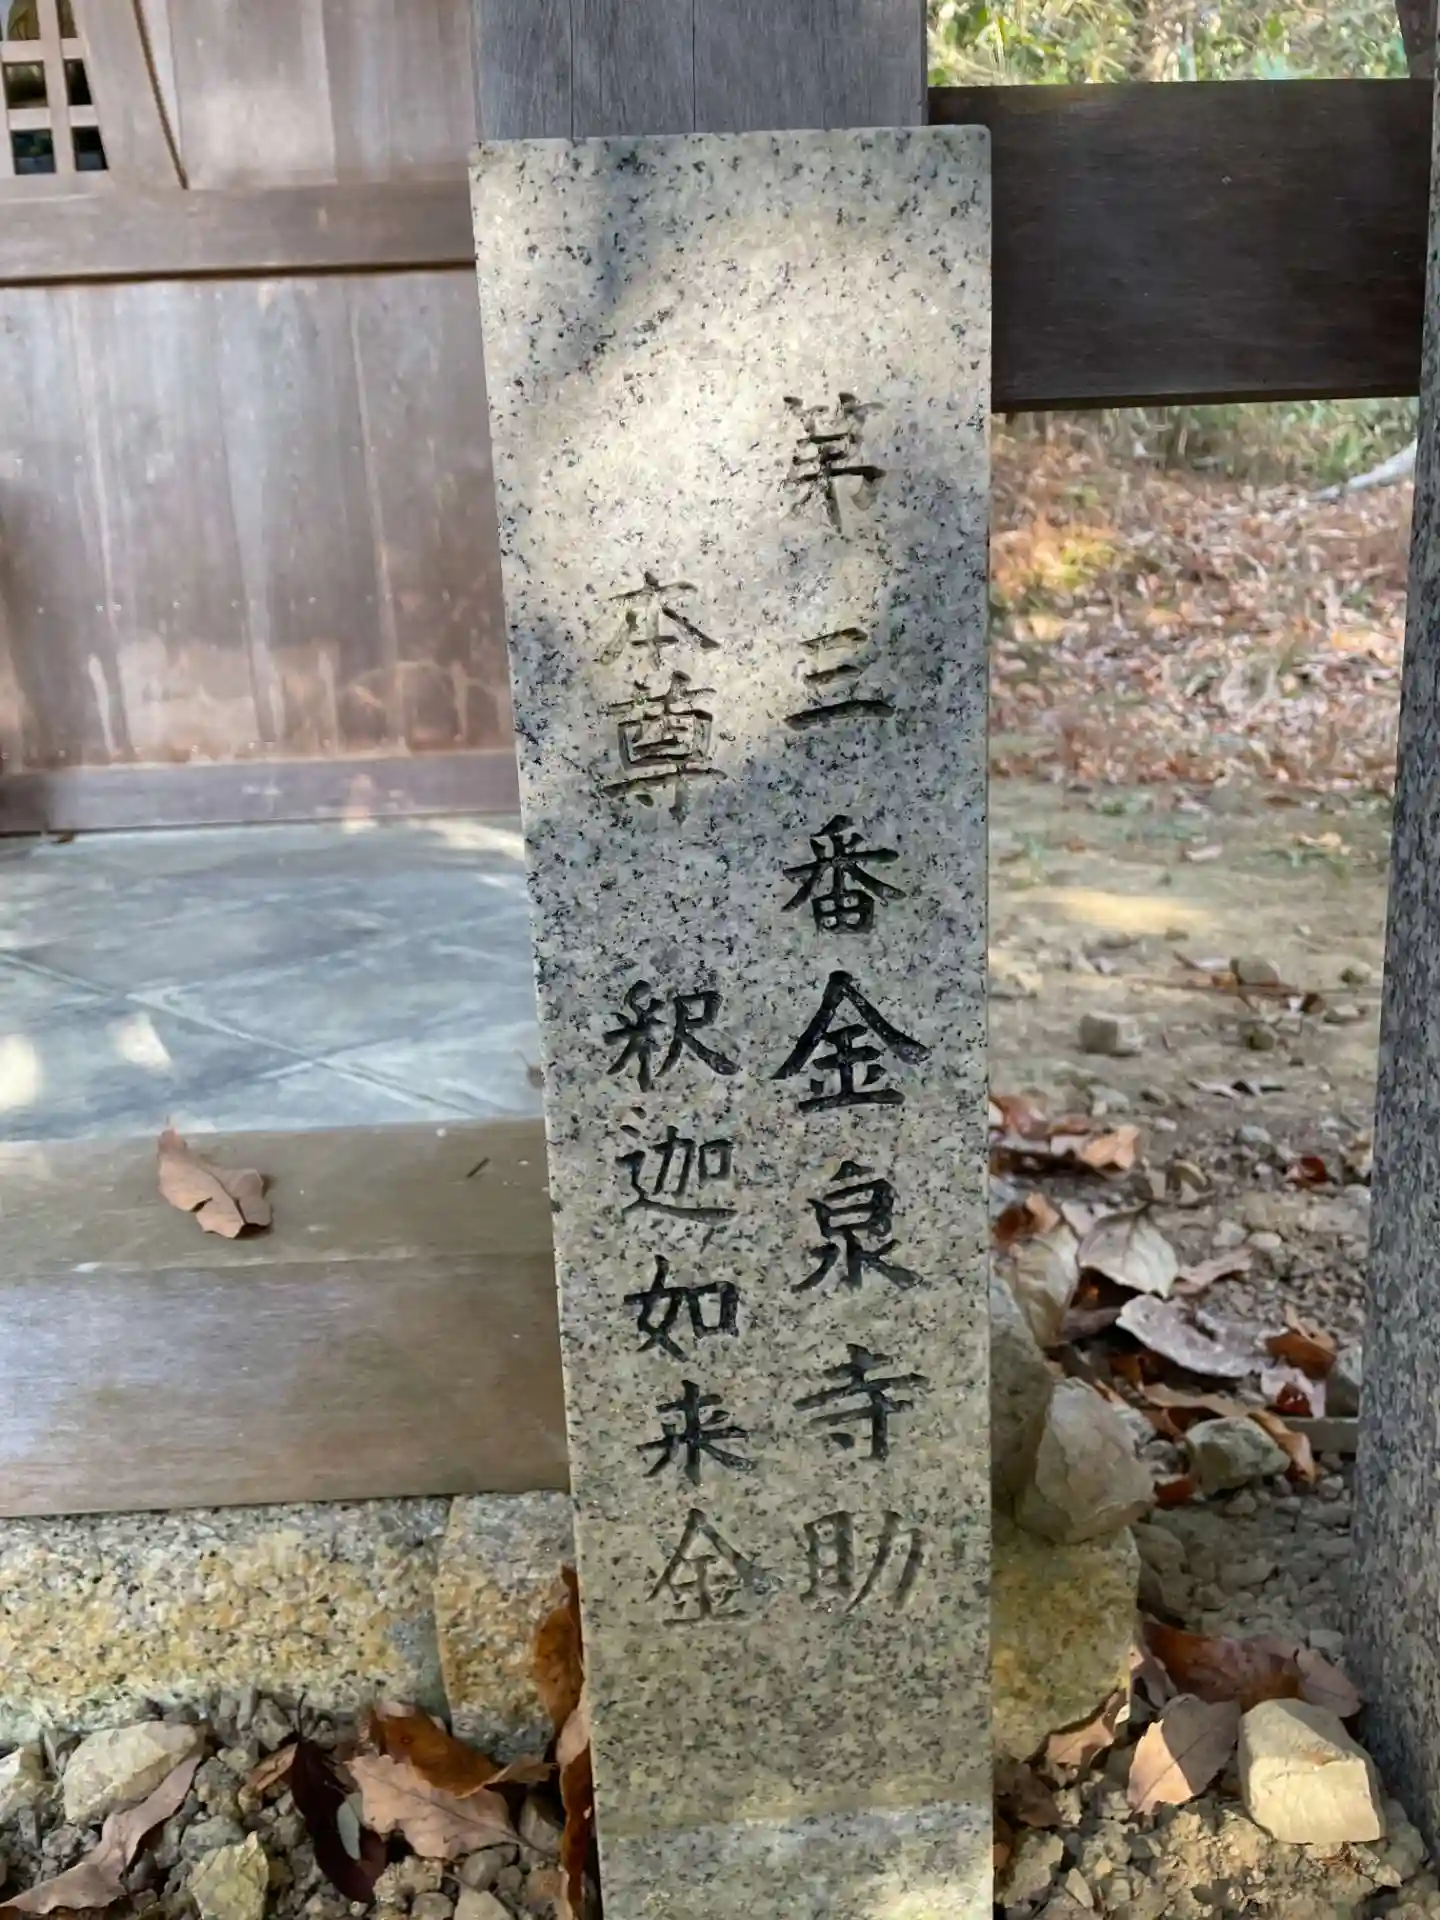 第三番金泉寺助
本尊 釈迦如来金